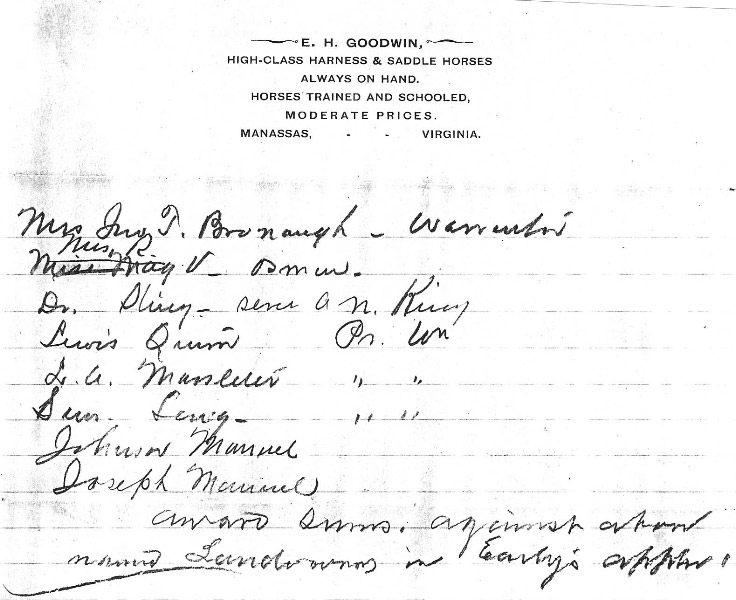 E. H. GOODWIN,
HIGH-CLASS HARNESS & SADDLE HORSES
ALWAYS ON HAND.
HORSES TRAINED AND SCHOOLED,
MODERATE PRICES.
MANASSAS, - - VIRGINIA.
Mrs Jno T. Bronaugh - Warrenton
Mrs R
Miss May V -
Dr. - serve A N. King
Lewis Quinn Pr. Wm
L. A. " "
Long - " "
Johnson Manuel
Joseph Manuel
award sums. against above
named Landowners in Early's appln